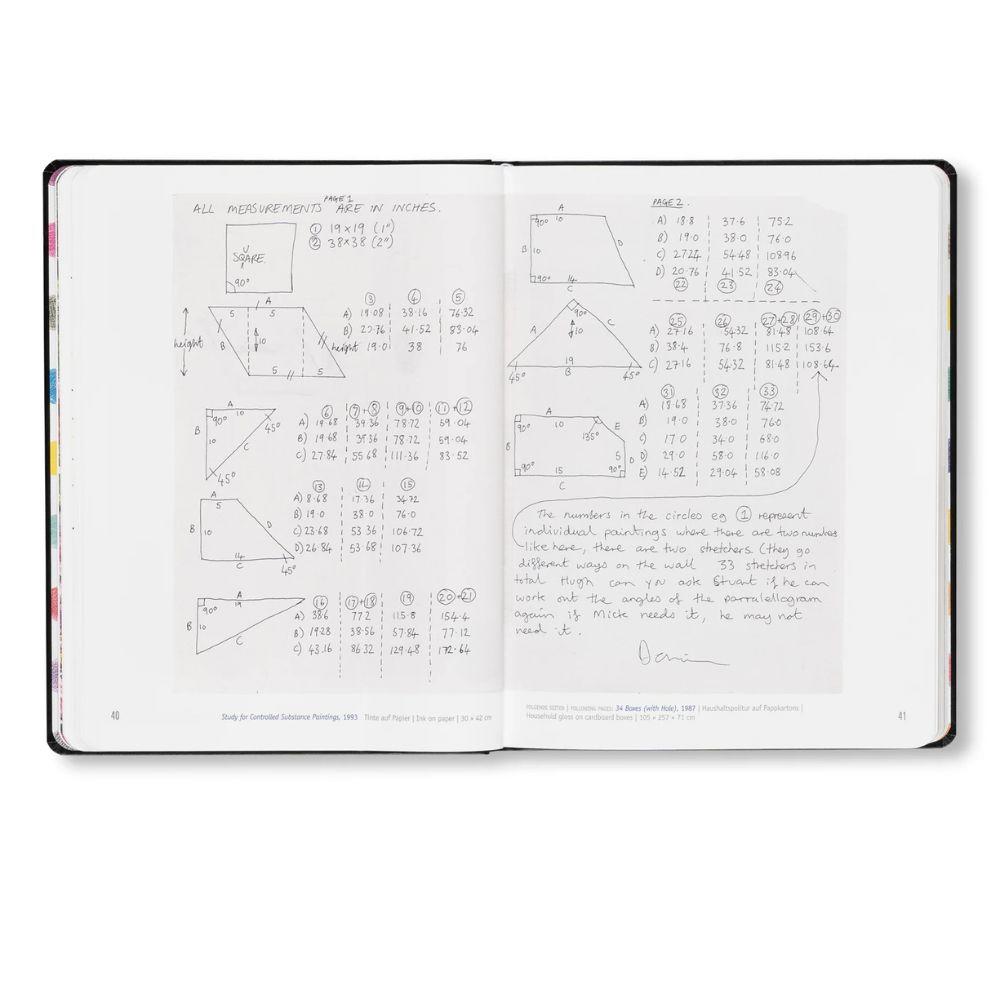 PAGE 1
ALL MEASUREMENTS ARE IN INCHES.
① 19×19 (1")
② 38×38 (2")
SQARE
U
90°
A
5 5
height
B
10
height
5 5
③ ④ ⑤
A) 19.08 38.16 76.32
B) 20.76 41.52 83.04
19.0 38 76
A
10
90°
45°
B
10
C
45°
⑥ ⑦+⑧ ⑨+⑩ ⑪+⑫
A) 19.68 39.36 78.72 59.04
B) 19.68 39.36 78.72 59.04
C) 27.84 55.68 111.36 83.52
A
5
B
10
D
14
C
45°
⑬ ⑭ ⑮
A) 8.68 17.36 34.72
B) 19.0 38.0 76.0
C) 23.68 53.36 106.72
D) 26.84 53.68 107.36
A
19
90°
B
10
C
⑯ ⑰+⑱ ⑲ ⑳+㉑
A) 38.6 77.2 115.8 154.4
B) 19.28 38.56 57.84 77.12
C) 43.16 86.32 129.48 172.64
40
Study for Controlled Substance Paintings, 1993 Tinte auf Papier | Ink on paper | 30 × 42 cm
PAGE 2.
A
10
90°
B
10
D
90°
14
C
A) 18.8 37.6 75.2
B) 19.0 38.0 76.0
C) 27.24 54.48 108.96
D) 20.76 41.52 83.04
㉒ ㉓ ㉔
90°
A
10
C
19
45°
B
45°
㉕ ㉖ ㉗+㉘ ㉙+㉚
A) 27.16 54.32 81.48 108.64
B) 38.4 76.8 115.2 153.6
C) 27.16 54.32 81.48 108.64
A
10
E
135°
B
10
5
D
90°
15
90°
C
㉛ ㉜ ㉝
A) 18.68 37.36 74.72
B) 19.0 38.0 76.0
C) 17.0 34.0 68.0
D) 29.0 58.0 116.0
E) 14.52 29.04 58.08
The numbers in the circles eg ① represent
individual paintings where there are two numbers
like here, there are two stretchers. (they go
different ways on the wall 33 stretchers in
total Hugh can you ask Stuart if he can
work out the angles of the parralellogram
again if Mick needs it, he may not
need it.
FOLGENDE SEITEN | FOLLOWING PAGES: 34 Boxes (with Hole), 1987 | Haushaltspolitur auf Pappkartons |
Household gloss on cardboard boxes | 105 × 257 × 71 cm
41